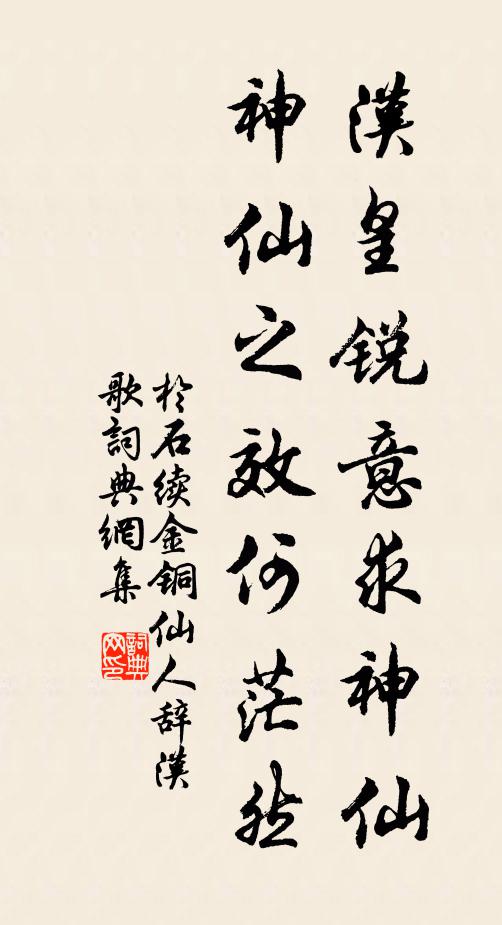 漢皇锐意求神仙
神仙之效何茫然
於石续金铜仙人辞漢
歌詞典網集
詞典
网印